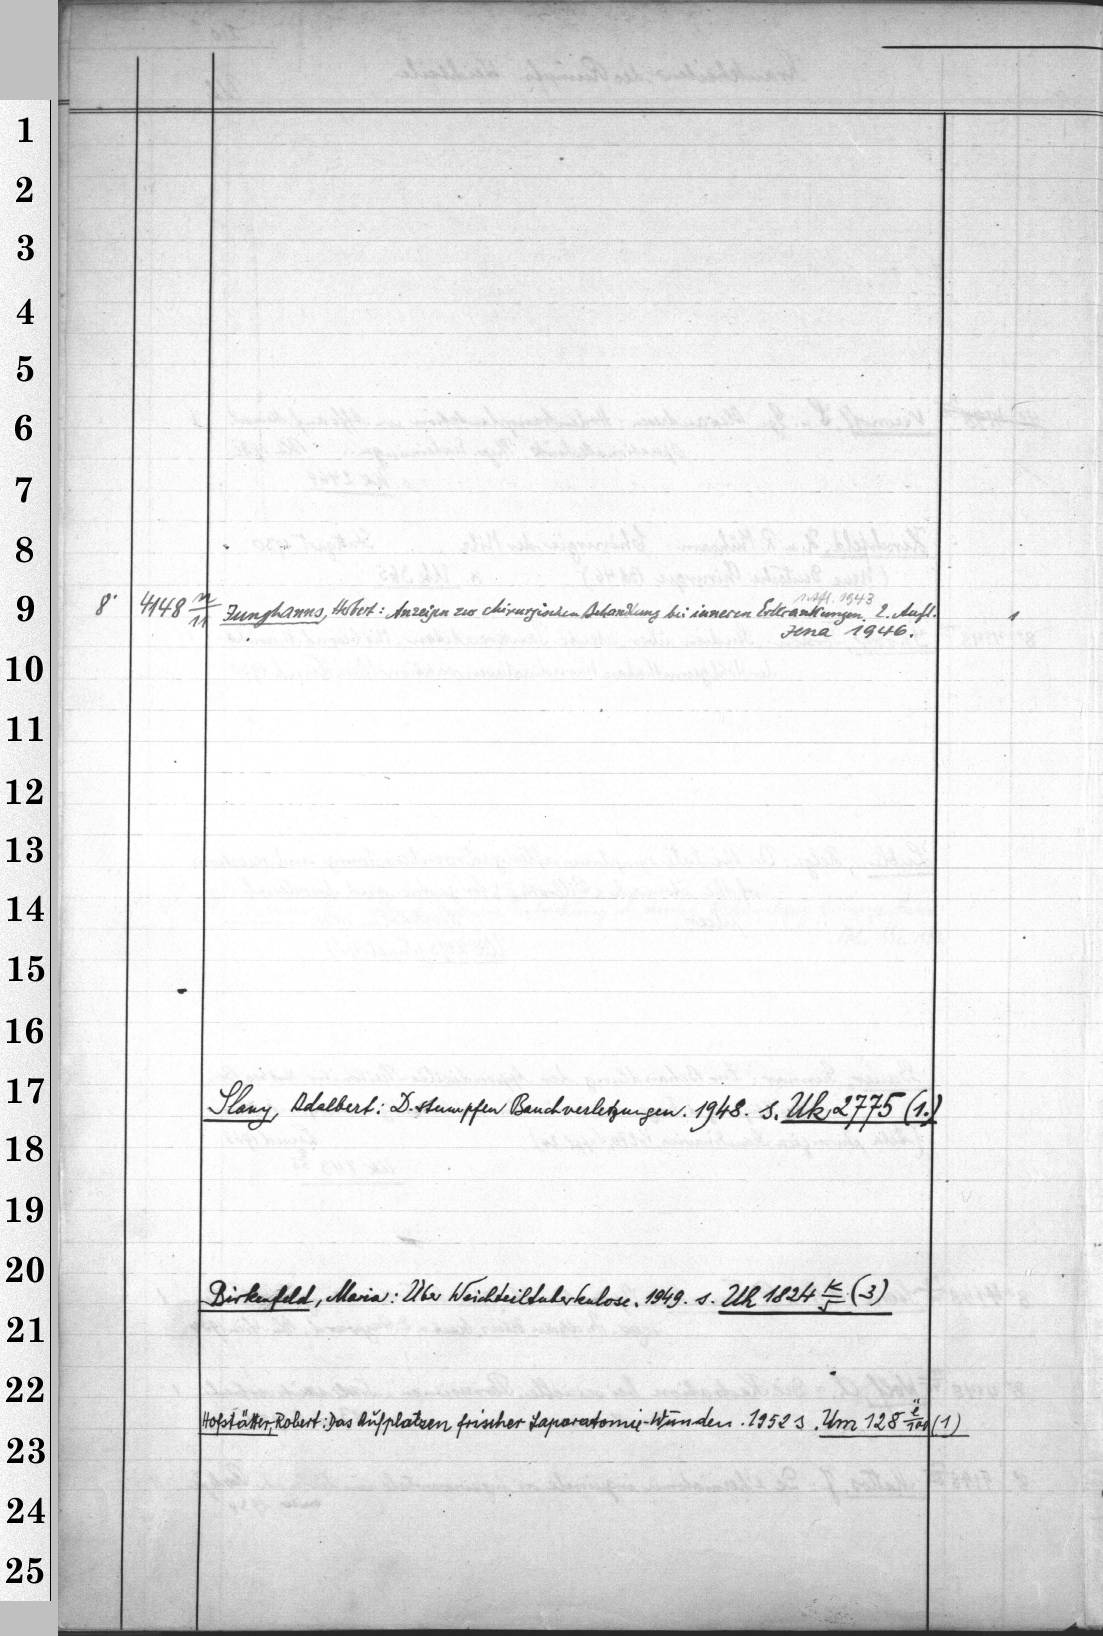 1
2
3
4
5
6
7
8
1. Afl. 1943
9 8° 4148 n/11 Junghanns, Herbert: Anzeigen zur chirurgischen Behandlung bei inneren Erkrankungen. 2. Aufl. 1
Jena 1946.
10
11
12
13
14
15
16
17 Slany, Adalbert: D. stumpfen Bauchverletzungen. 1948. s. Uk 2775 (1.)
18
19
20
Birkenfeld, Maria: Über Weichteiltuberkulose. 1949. s. Uh 1824 (3)
21
22
Hofstätter, Robert: Das Aufplatzen frischer Laparatomie-Wunden. 1952 s. Um 128 ë/100 (1)
23
24
25